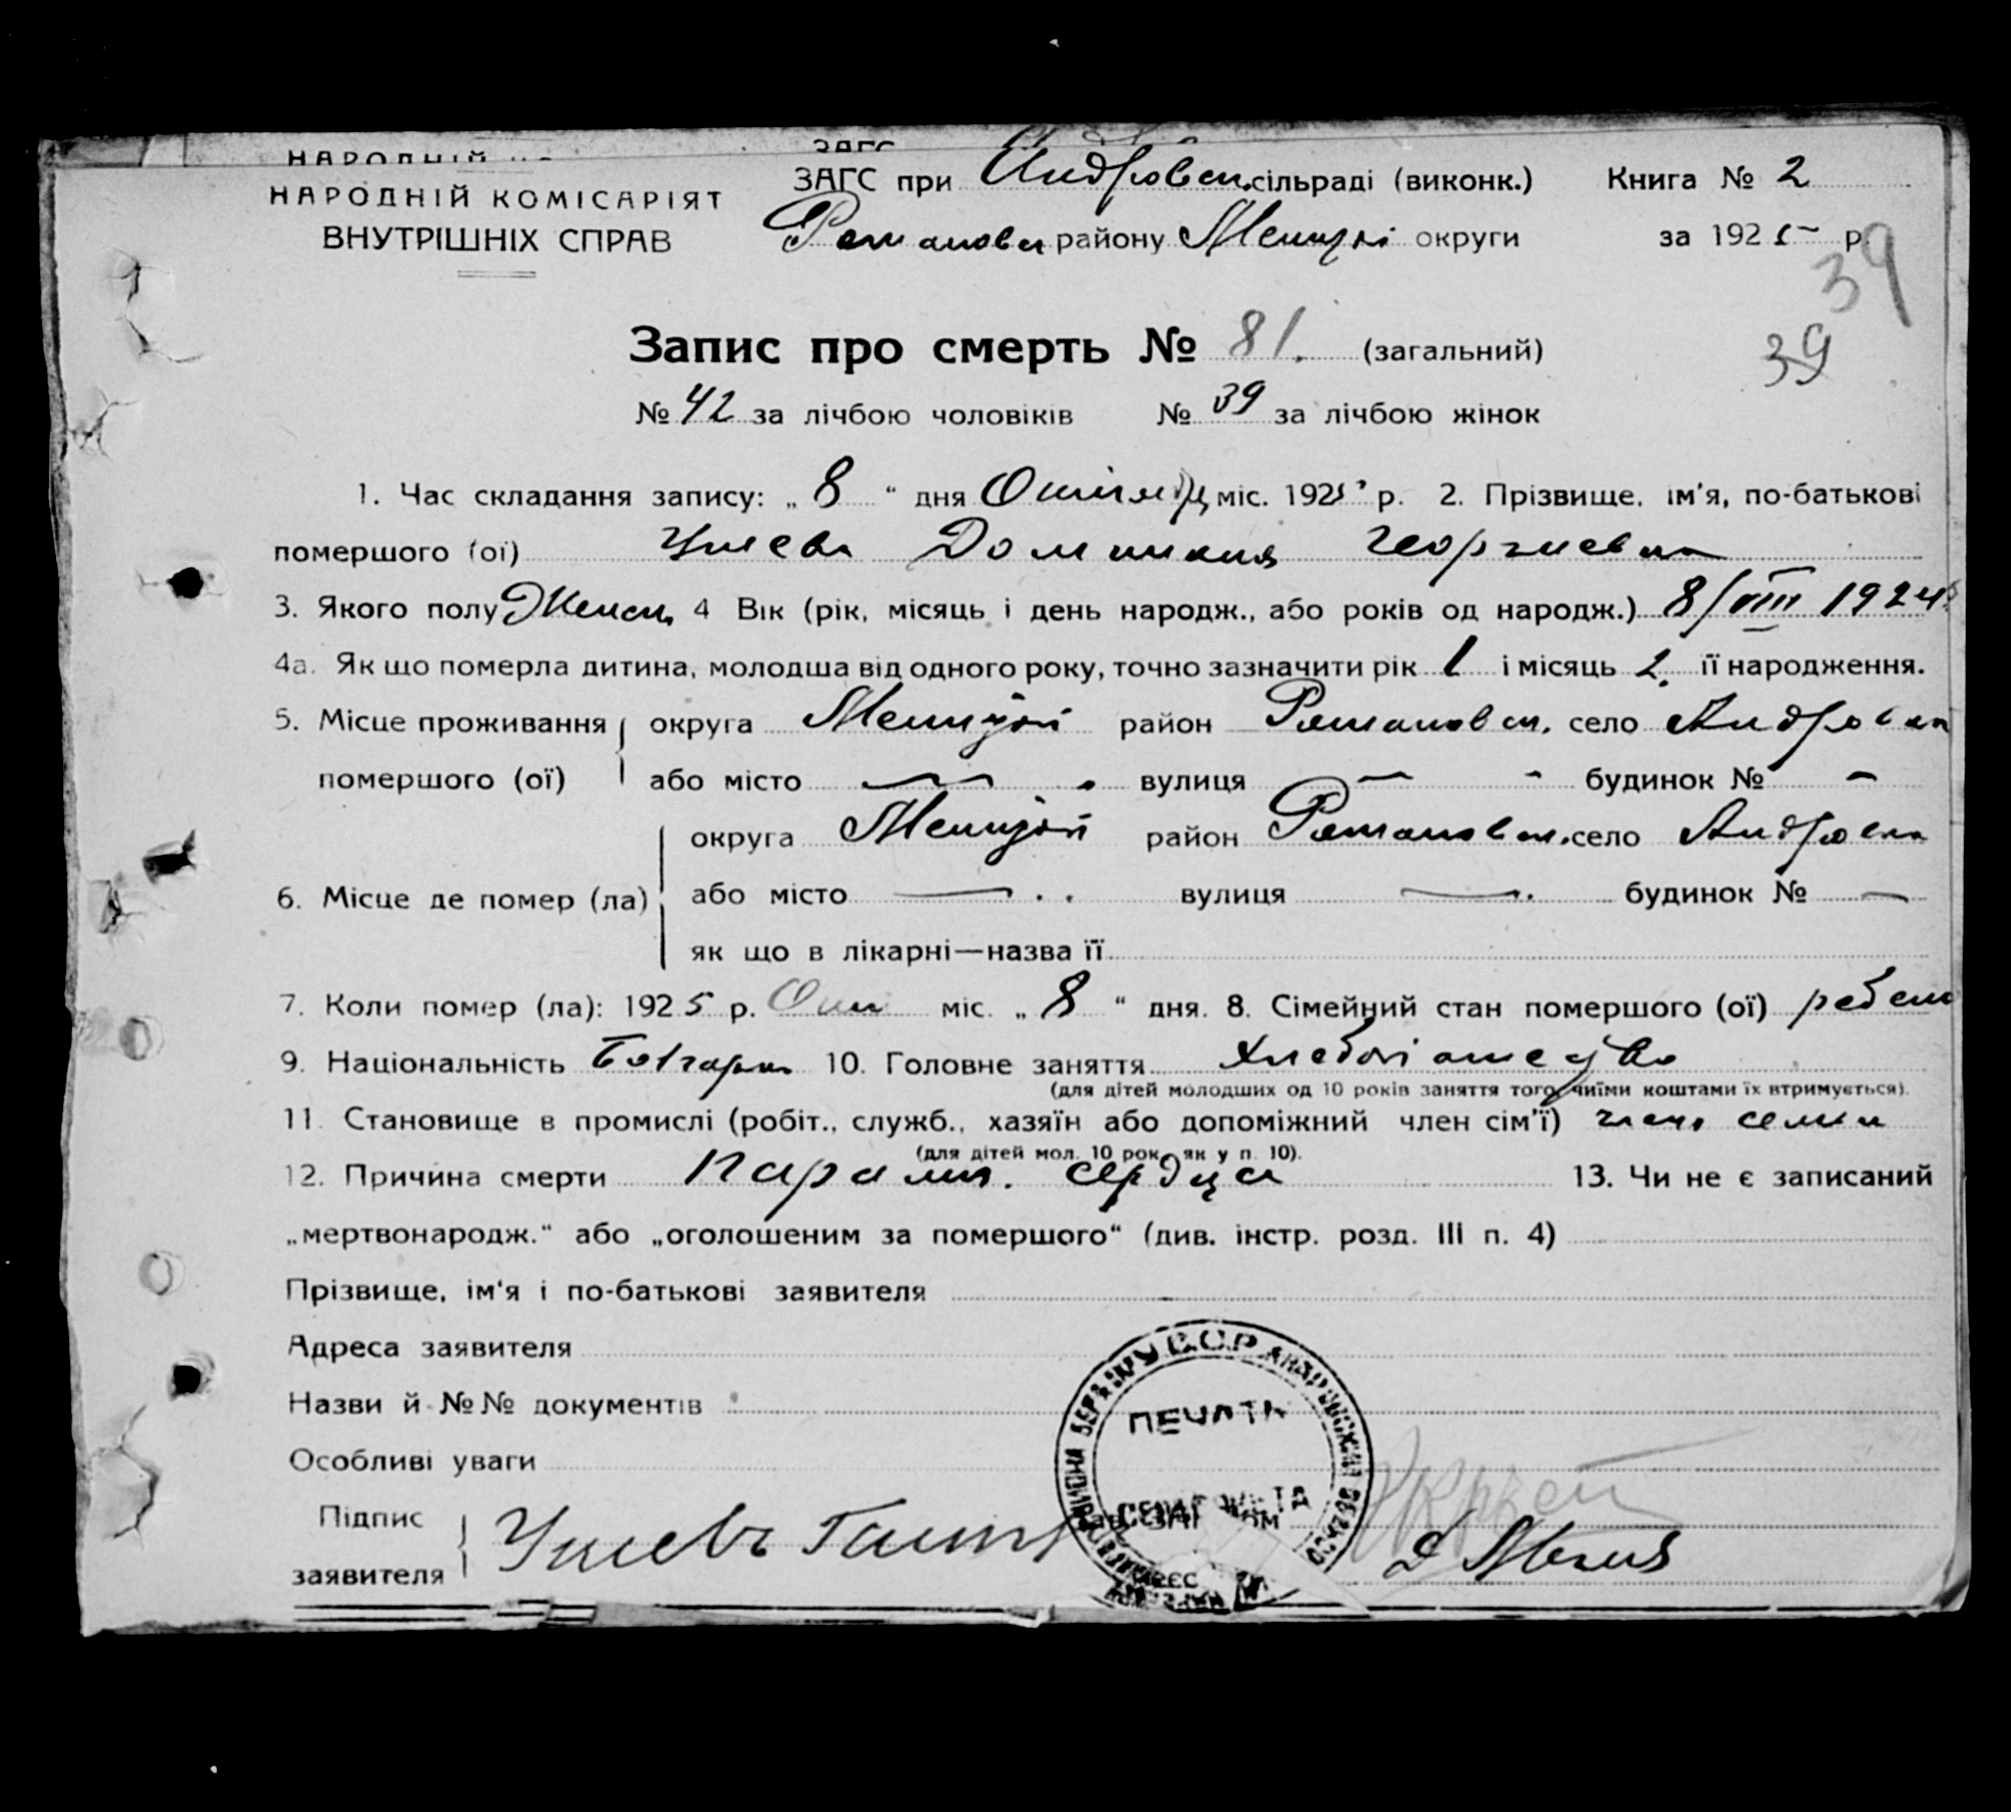 НАРОДНІЙ КОМІСАРІЯТ
ВНУТРІШНІХ СПРАВ
ЗАГС при Андровск. сільраді (виконк.)
Романовск району округи
Книга № 2
за 1925 р.
39
39
Запис про смерть № 81. (загальний)
№ 42 за лічбою чоловіків № 39 за лічбою жінок
1. Час складання запису: „ 8 “ дня Октября міс. 1925 р. 2. Прізвище, ім'я, по-батькові
помершого (ої) Георгиевна
3. Якого полу Женск. 4 Вік (рік, місяць і день народж., або років од народж.) 8/VIII 1924
4а. Як що померла дитина, молодша від одного року, точно зазначити рік 1 і місяць 2. її народження.
5. Місце проживання округа район Романовск. село Андровка
помершого (ої) або місто — вулиця — будинок № —
округа район Романовск. село Андровка
6. Місце де помер (ла) або місто — вулиця — будинок № —
як що в лікарні—назва її
7. Коли помер (ла): 1925 р. Окт міс. „ 8 “ дня. 8. Сімейний стан помершого (ої) ребенок
9. Національність Болгарка 10. Головне заняття
(для дітей молодших од 10 років заняття того, чиїми коштами їх втримується).
11. Становище в промислі (робіт., служб., хазяїн або допоміжний член сім'ї) член семьи
(для дітей мол. 10 рок. як у п. 10).
12. Причина смерти Парали. сердца 13. Чи не є записаний
„мертвонародж.“ або „оголошеним за помершого“ (див. інстр. розд. III п. 4)
Прізвище, ім'я і по-батькові заявителя
Адреса заявителя
Назви й №№ документів
Особливі уваги
Підпис
заявителя
УССР
ПЕЧАТЬ